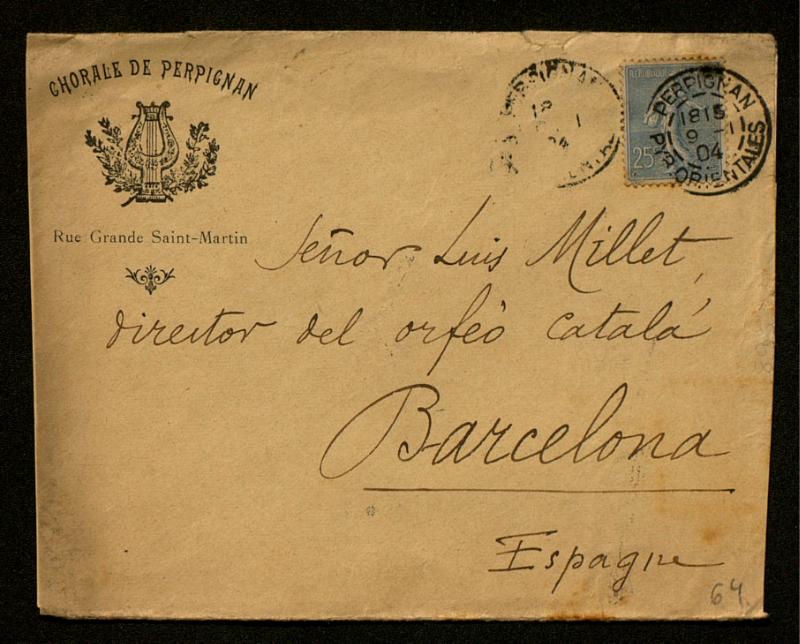 CHORALE DE PERPIGNAN
Rue Grande Saint-Martin
REPUBLIQUE
25
PERPIGNAN
1815
9 -1
04
PYR. ORIENTALES
Señor Luis Millet,
director del orfeò català
Barcelona
Espagne
64